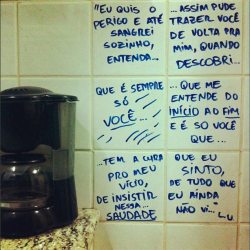 "EU QUIS O
PERIGO E ATÉ
SANGREI
SOZINHO,
ENTENDA...
...ASSIM PUDE
TRAZER VOCÊ
DE VOLTA PRA
MIM, QUANDO
DESCOBRI...
QUE É SEMPRE
SÓ
VOCÊ...
...QUE ME
ENTENDE DO
INÍCIO AO FIM
E É SÓ VOCÊ
QUE...
...TEM A CURA
PRO MEU
VÍCIO,
DE INSISTIR
NESSA
SAUDADE
QUE EU
SINTO,
DE TUDO QUE
EU AINDA
NÃO VI..."
L.U.